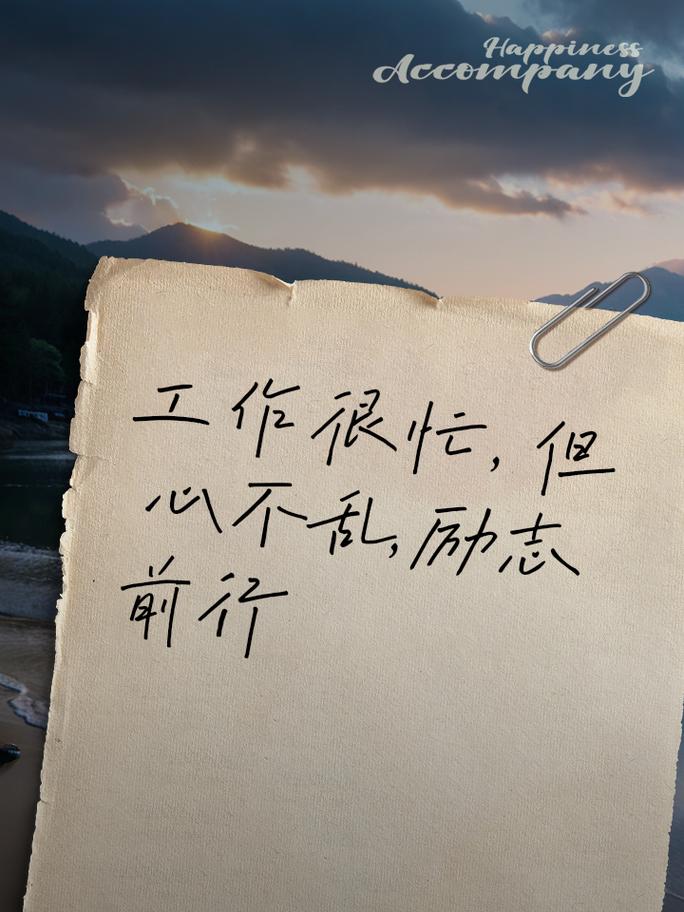 Happiness
Accompany
工作很忙,但
心不乱,励志
前行